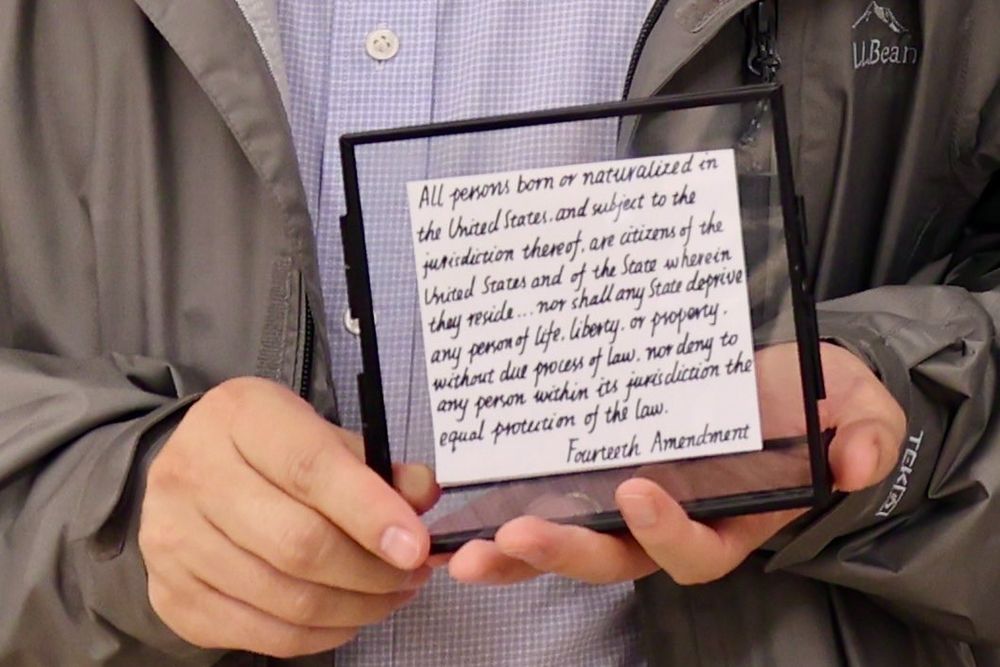 L.L.Bean
All persons born or naturalized in
the United States, and subject to the
jurisdiction thereof, are citizens of the
United States and of the State wherein
they reside... nor shall any State deprive
any person of life, liberty, or property,
without due process of law, nor deny to
any person within its jurisdiction the
equal protection of the law.
Fourteeth Amendment
TEK